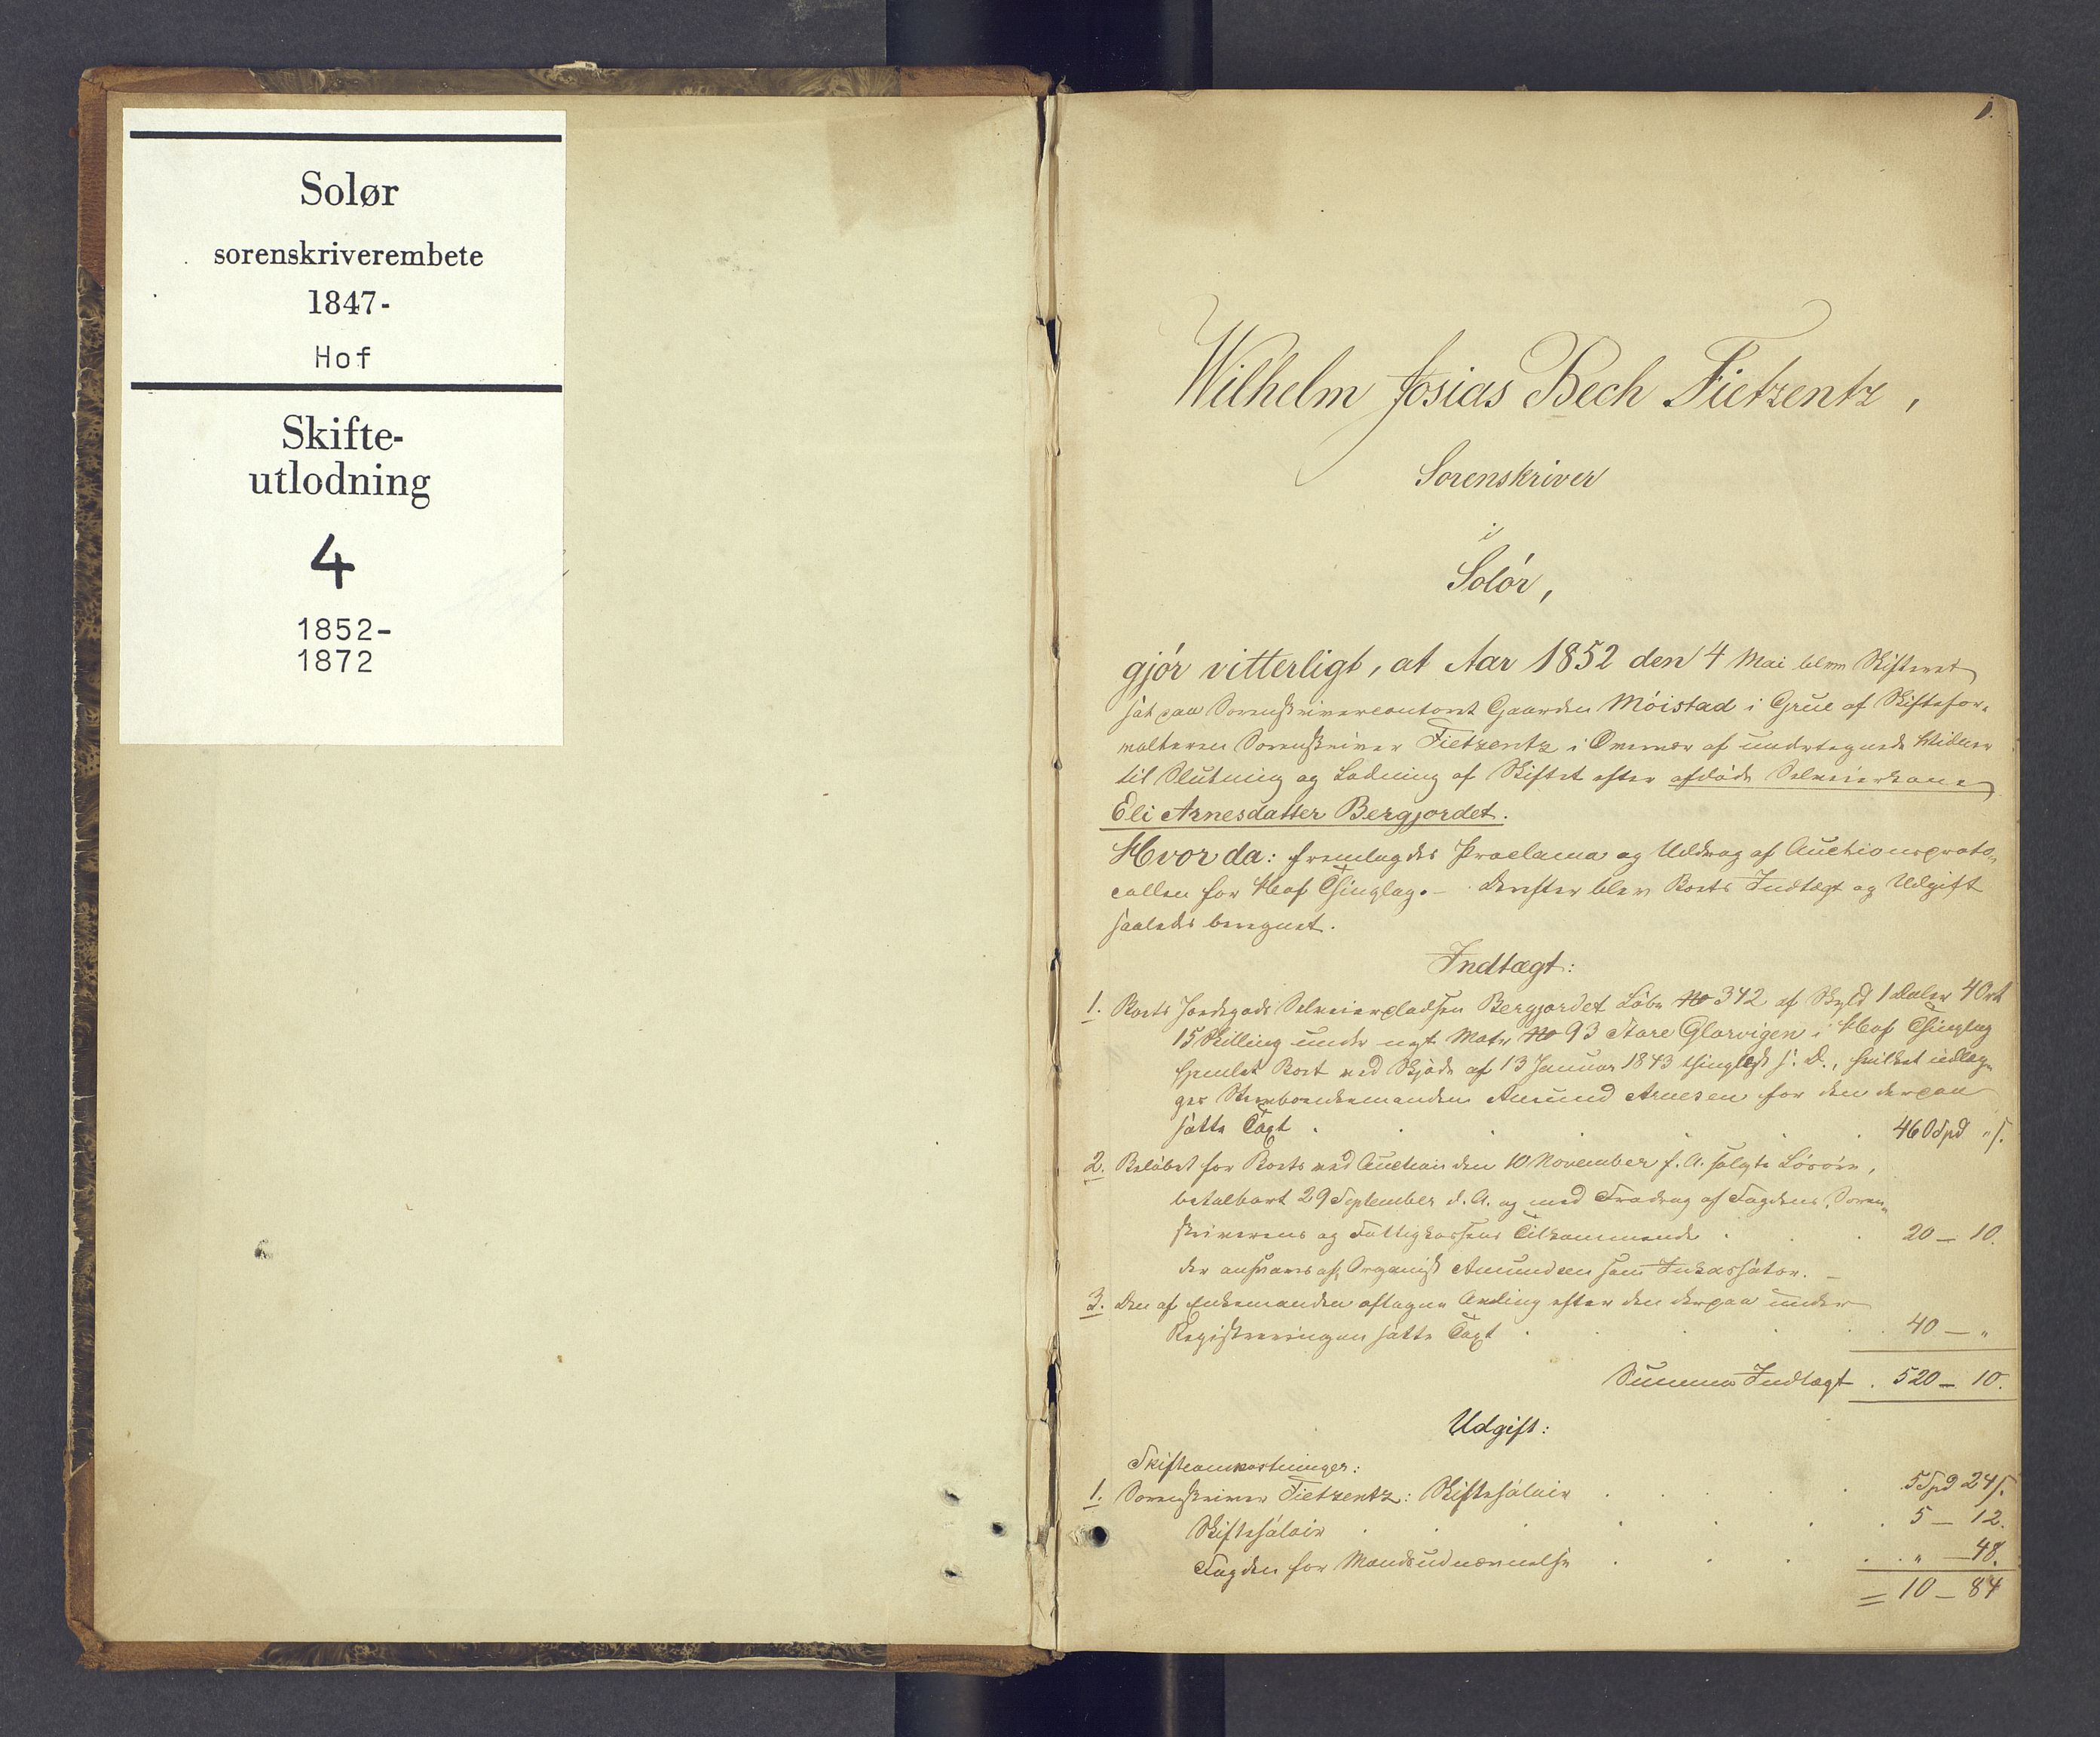 Solør
sorenskriverembete
1847-
Hof
Skifte-
utlodning
4
1852-
1872
1.
Wilhelm Josias Bech Fietzentz,
Sorenskriver
i
Solør,
gjør vitterligt, at Aar 1852 den 4 Mai blev Skifteret
sat paa Sorenskrivercontoret Gaarden Möistad i Grue af Skiftefor-
valteren Sorenskriver Fietzentz i Overvær af undertegnede Vidner
til Slutning og Lodning af Skiftet efter afdöde Selveierkone
Eli Arnesdatter Bergjordet.
Hvor da: fremlagdes Proclama og Uddrag af Auctionsproto-
collen for Hof Thinglag. - Derefter blev Boets Indtægt og Udgift
saaledes beregnet.
Indtægt:
1. Boets Jordegods Selveierpladsen Bergjordet Löbe No 342 af Skyld 1 Daler 4 Ort
15 Skilling under nyt Matr No 93 Store Glorvigen i Hof Thinglag
hjemlet Boet ved Skjöde af 13 Januar 1843 thinglyst s. D., hvilket udlæg-
ges Stervboenkemanden Amund Arnesen for den derpaa
satte Taxt . 460 Spd " s.
2. Belöbet for Boets ved Auction den 10 November f. A. solgte Lösöre,
betalbart 29 September d. A. og med Fradrag af Fogdens, Soren-
skriverens og Fattigkassens Tilkommende . 20 - 10.
der ansvares af Organist Amundsen som Inkassator. -
3. Den af Enkemanden aftagne Avling efter den derpaa under
Registreringen satte Taxt . 40 - "
Summa Indtægt . 520 - 10.
Udgift:
Skifteomkostninger:
1. Sorenskriver Fietzentz: Skiftesalair . 5 Spd 24 s.
Skiftesalair . 5 - 12.
Fogden for Mandsudnævnelse . " - 48.
= 10 - 84